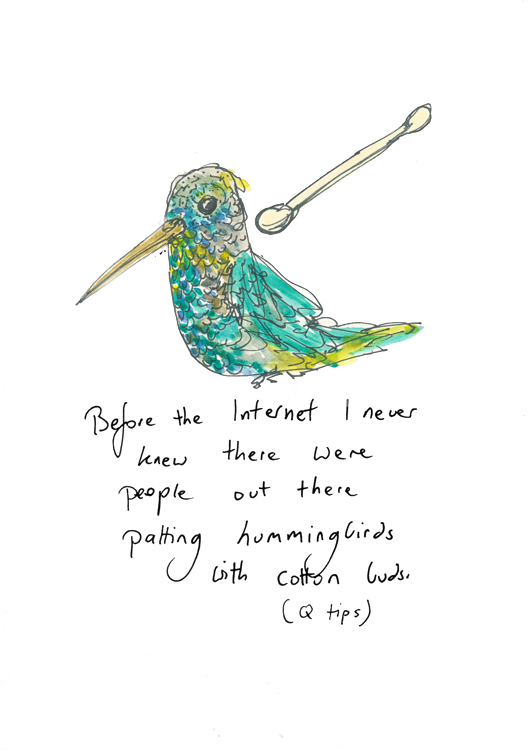 Before the Internet I never
knew there were
people out there
patting hummingbirds
with cotton buds.
(Q tips)